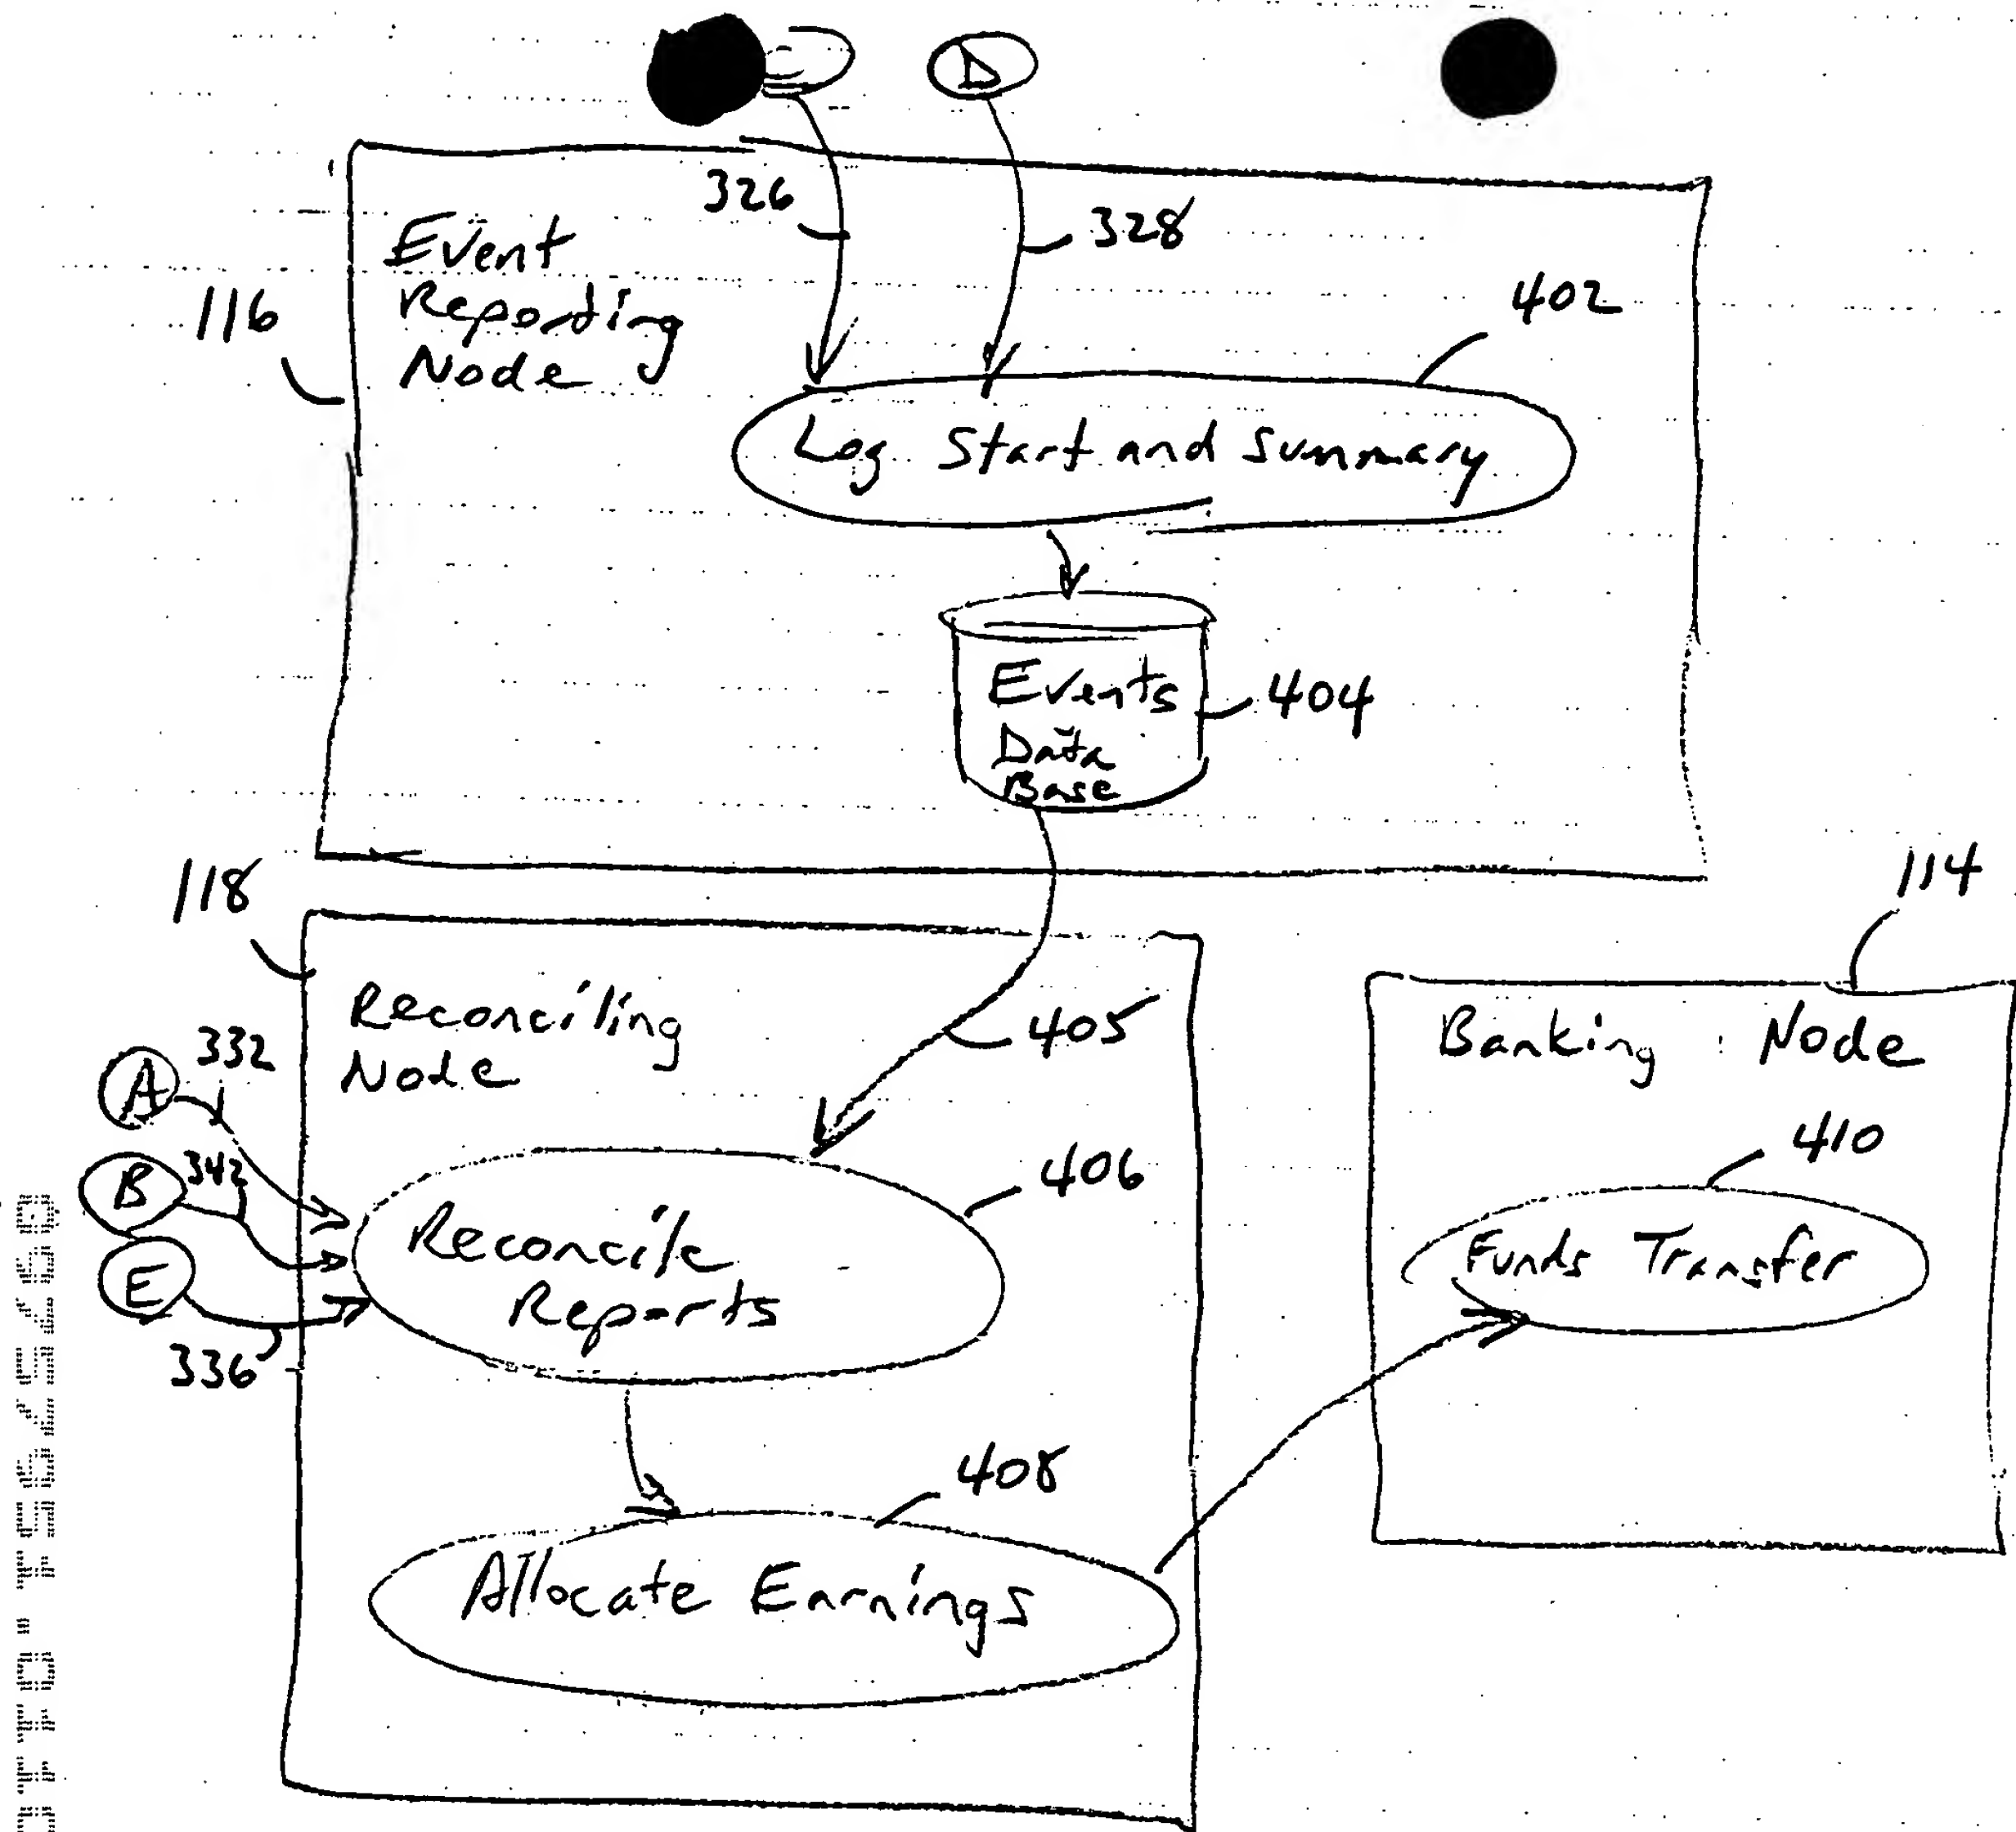 D
326
328
Event
Reporting
Node
116
402
Log Start and Summary
Events
Data
Base
404
118
114
Reconciling
Node
405
Banking Node
332
A
342
B
E
336
406
Reconcile
Reports
410
Funds Transfer
408
Allocate Earnings